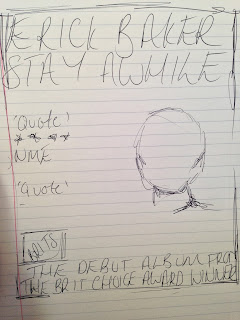 ERICK BAKER
STAY AWHILE
'Quote'
****
NME
'Quote'
THE DEBUT ALBUM FROM
THE BRIT CHOICE AWARD WINNER